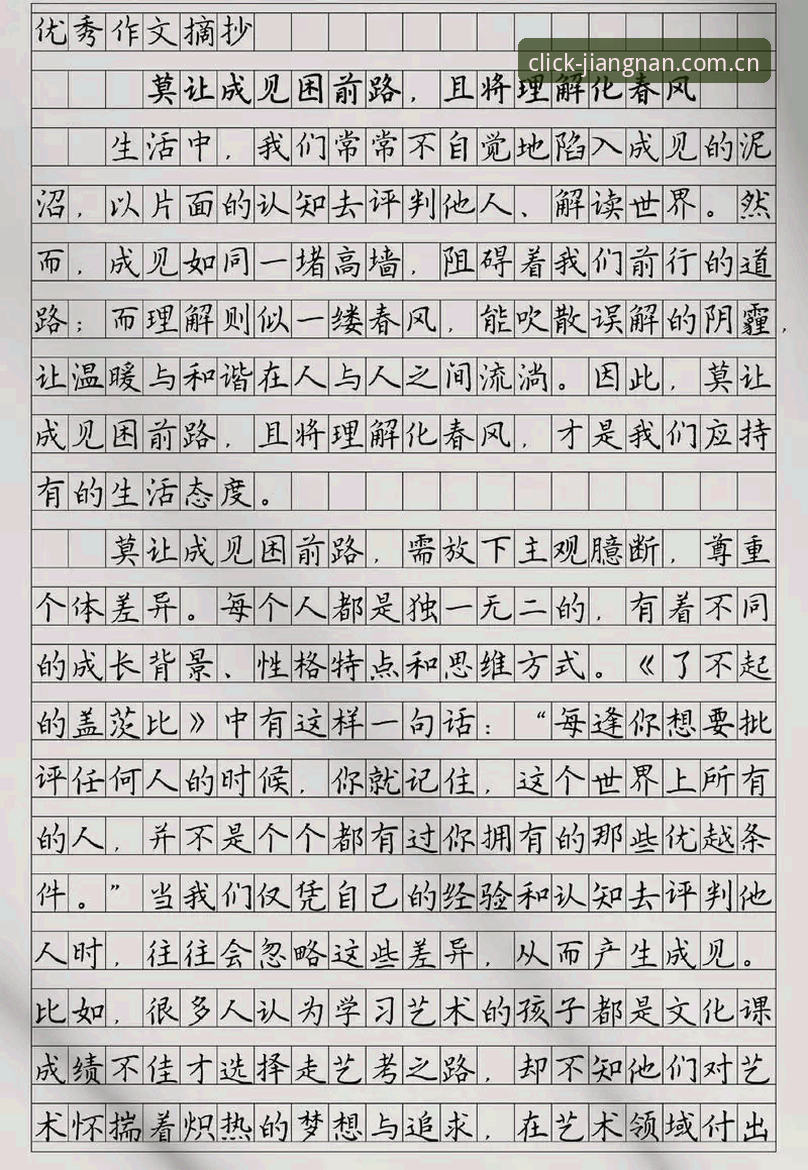 优秀作文摘抄
click-jiangnan.com.cn
莫让成见困前路，且将理解化春风
生活中，我们常常不自觉地陷入成见的泥
沼，以片面的认知去评判他人、解读世界。然
而，成见如同一堵高墙，阻碍着我们前行的道
路；而理解则似一缕春风，能吹散误解的阴霾，
让温暖与和谐在人与人之间流淌。因此，莫让
成见困前路，且将理解化春风，才是我们应持
有的生活态度。
莫让成见困前路，需放下主观臆断，尊重
个体差异。每个人都是独一无二的，有着不同
的成长背景、性格特点和思维方式。《了不起
的盖茨比》中有这样一句话：“每逢你想要批
评任何人的时候，你就记住，这个世界上所有
的人，并不是个个都有过你拥有的那些优越条
件。”当我们仅凭自己的经验和认知去评判他
人时，往往会忽略这些差异，从而产生成见。
比如，很多人认为学习艺术的孩子都是文化课
成绩不佳才选择走艺考之路，却不知他们对艺
术怀揣着炽热的梦想与追求，在艺术领域付出